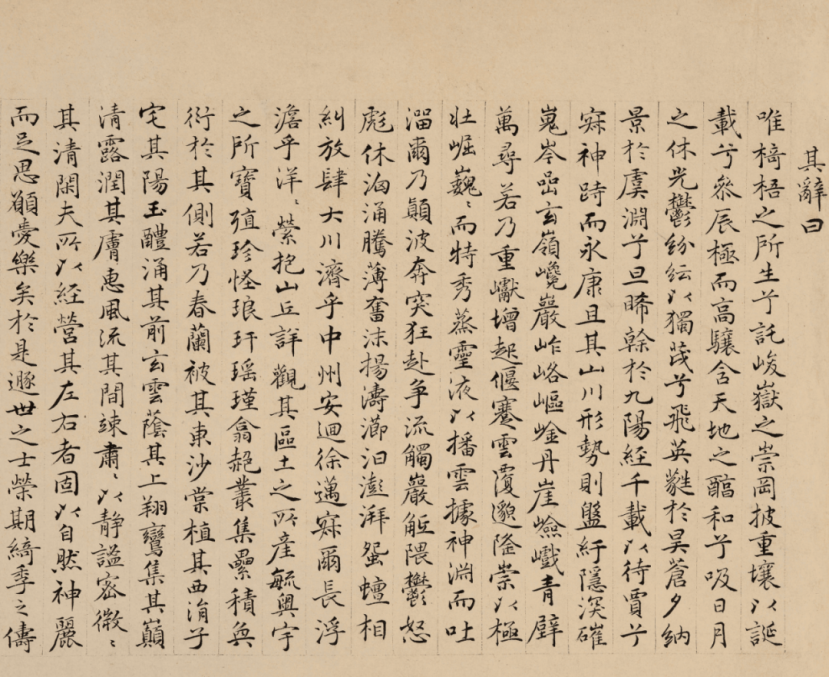 其辭曰
唯椅梧之所生兮託峻嶽之崇岡披重壤以誕
載兮叅辰極而高驤含天地之醇和兮吸日月
之休光鬱紛紜以獨茂兮飛英蕤於昊蒼夕納
景於虞淵兮旦晞幹於九陽經千載以待賈兮
寂神跱而永康且其山川形勢則盤紆隱深磪
嵬岑嵓玄嶺巉巖岝峈嶇崯丹崖嶮巇青壁
萬尋若乃重巘增起偃蹇雲覆邈隆崇以極
壯崛巍〻而特秀蒸靈液以播雲據神淵而吐
溜爾乃顛波奔突狂赴争流觸巖觝隈鬱怒
彪休洶涌騰薄奮沫揚濤瀄汩澎湃蜿蟺相
糾放肆大川濟乎中州安迴徐邁寂爾長浮
澹乎洋〻縈抱山丘詳觀其區土之所產毓奥宇
之所寶殖珍怪琅玕瑤瑾翕赩叢集累積奐
衍於其側若乃春蘭被其東沙棠植其西涓子
宅其陽玉醴涌其前玄雲蔭其上翔鸞集其巔
清露潤其膚惠風流其間竦肅〻以静謐密微〻
其清閑夫所以經營其左右者固以自然神麗
而足思願愛樂矣於是遯世之士榮期綺季之儔